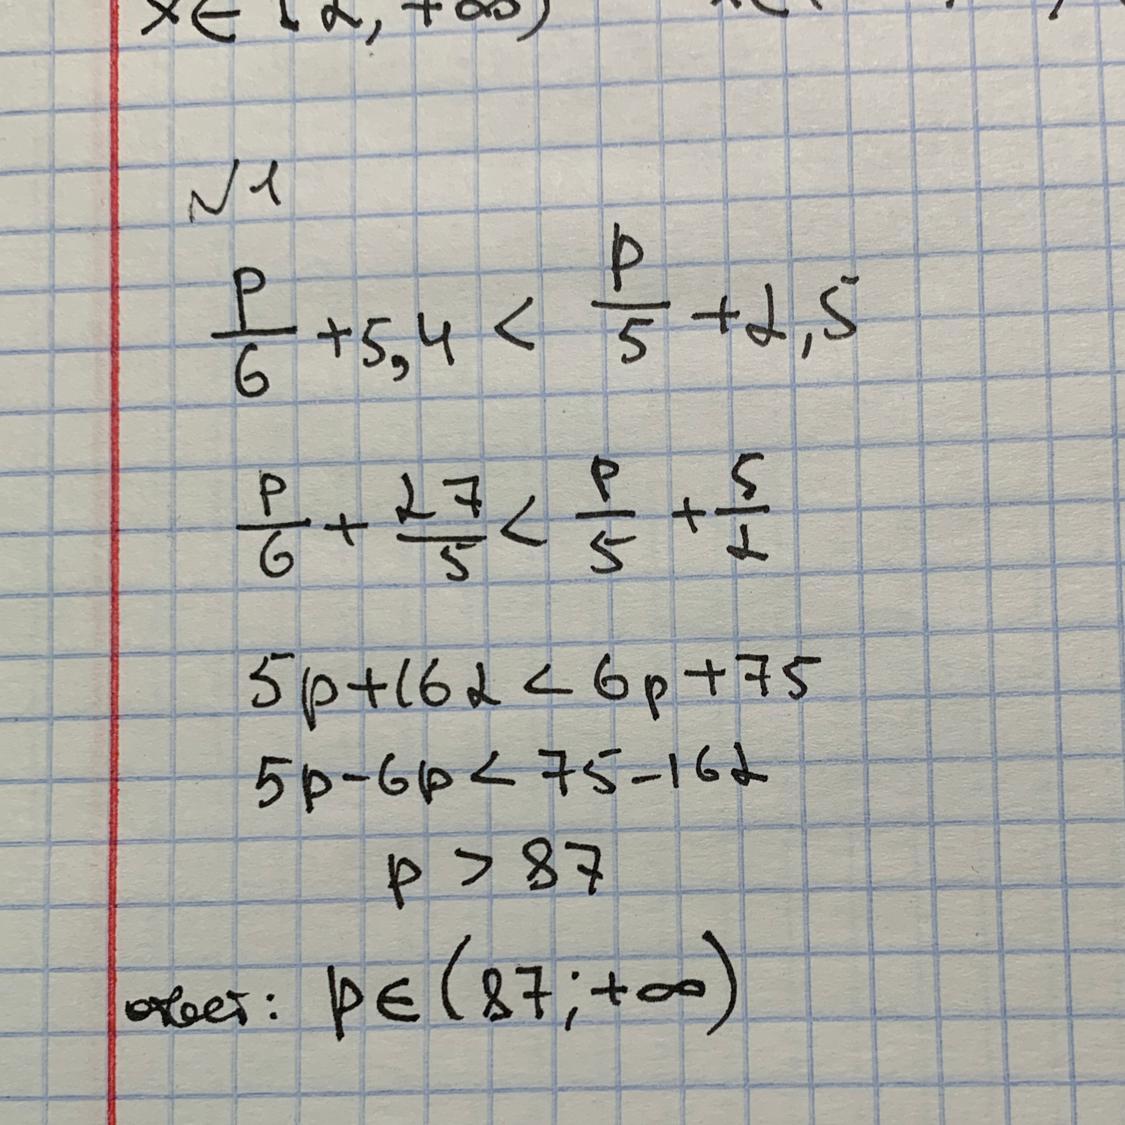 x∈ (2, +∞)
№1
p/6 + 5,4 < p/5 + 2,5
p/6 + 27/5 < p/5 + 5/2
5p + 162 < 6p + 75
5p - 6p < 75 - 162
p > 87
ответ: p∈(87;+∞)